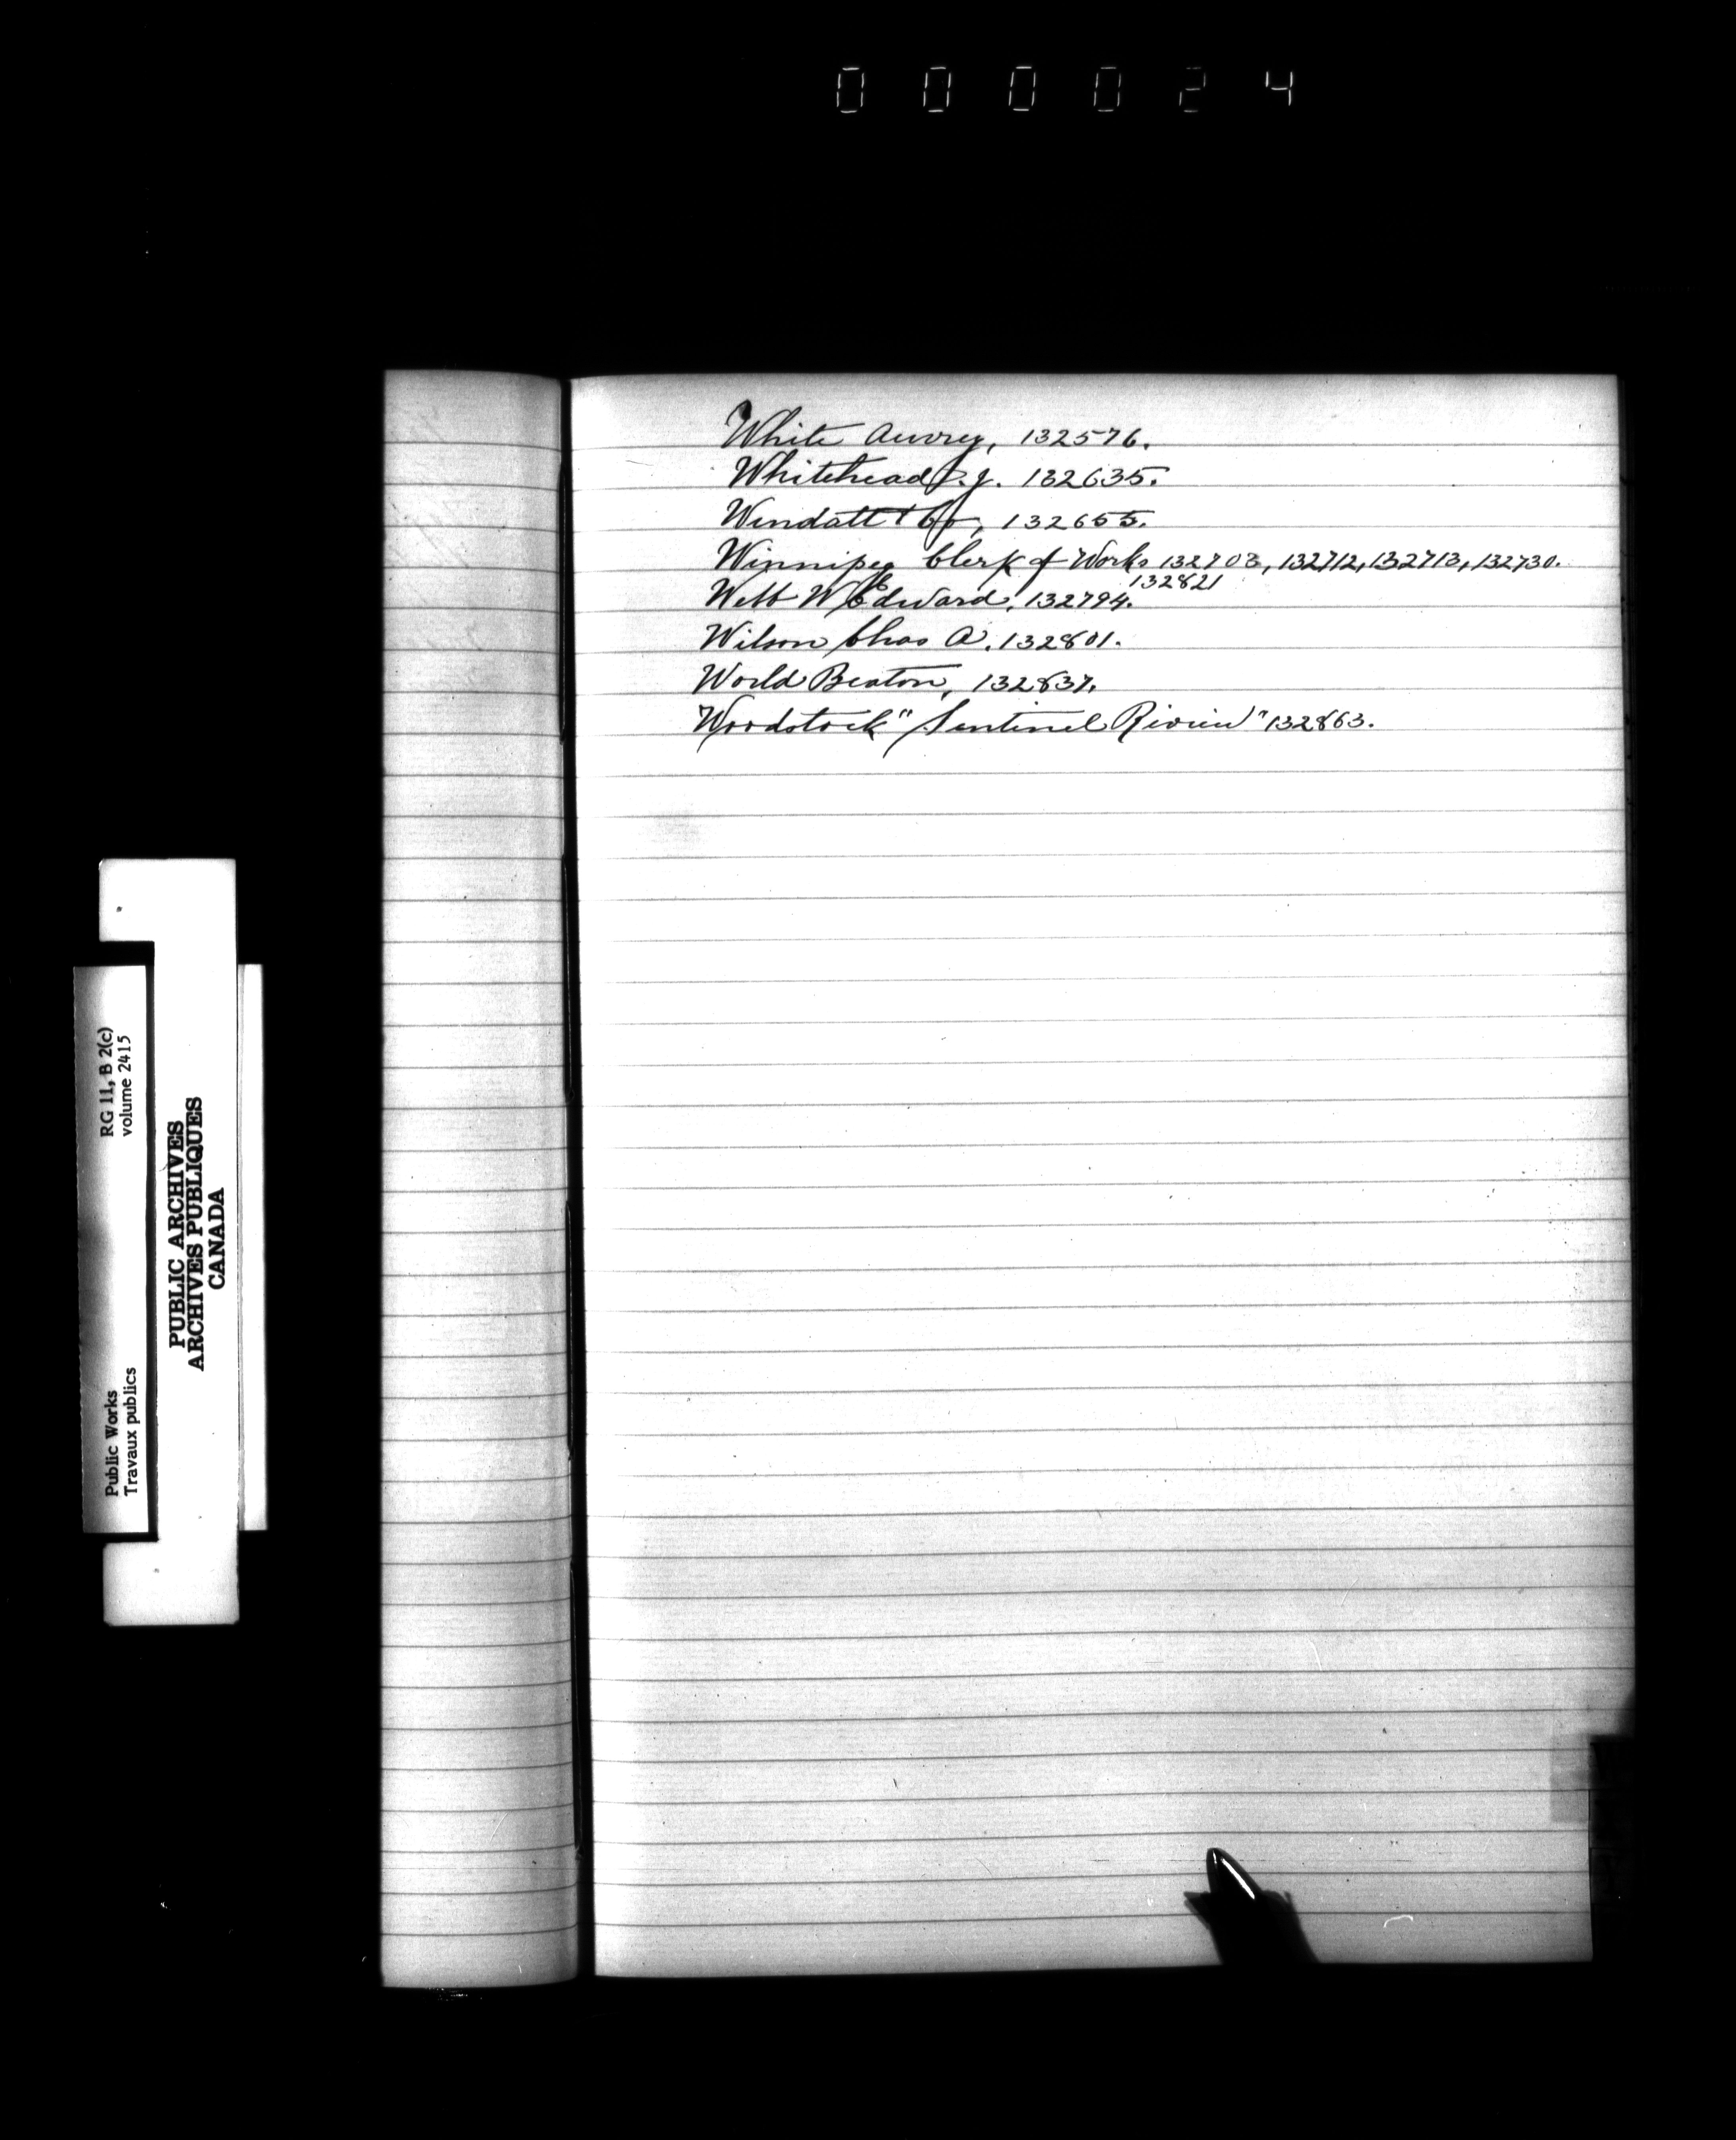 000024
White Auvrey, 132576.
Whitehead P.J. 132635.
Windatt & Co, 132655.
Winnipeg Clerk of Works 132703, 132712, 132713, 132730.
132821
Webb W Edward, 132794.
Wilson Chas A. 132801.
World Beaton, 132837.
Woodstock "Sentinel Review" 132863.
RG 11, B 2(c)
volume 2415
Public Works
Travaux publics
PUBLIC ARCHIVES
ARCHIVES PUBLIQUES
CANADA